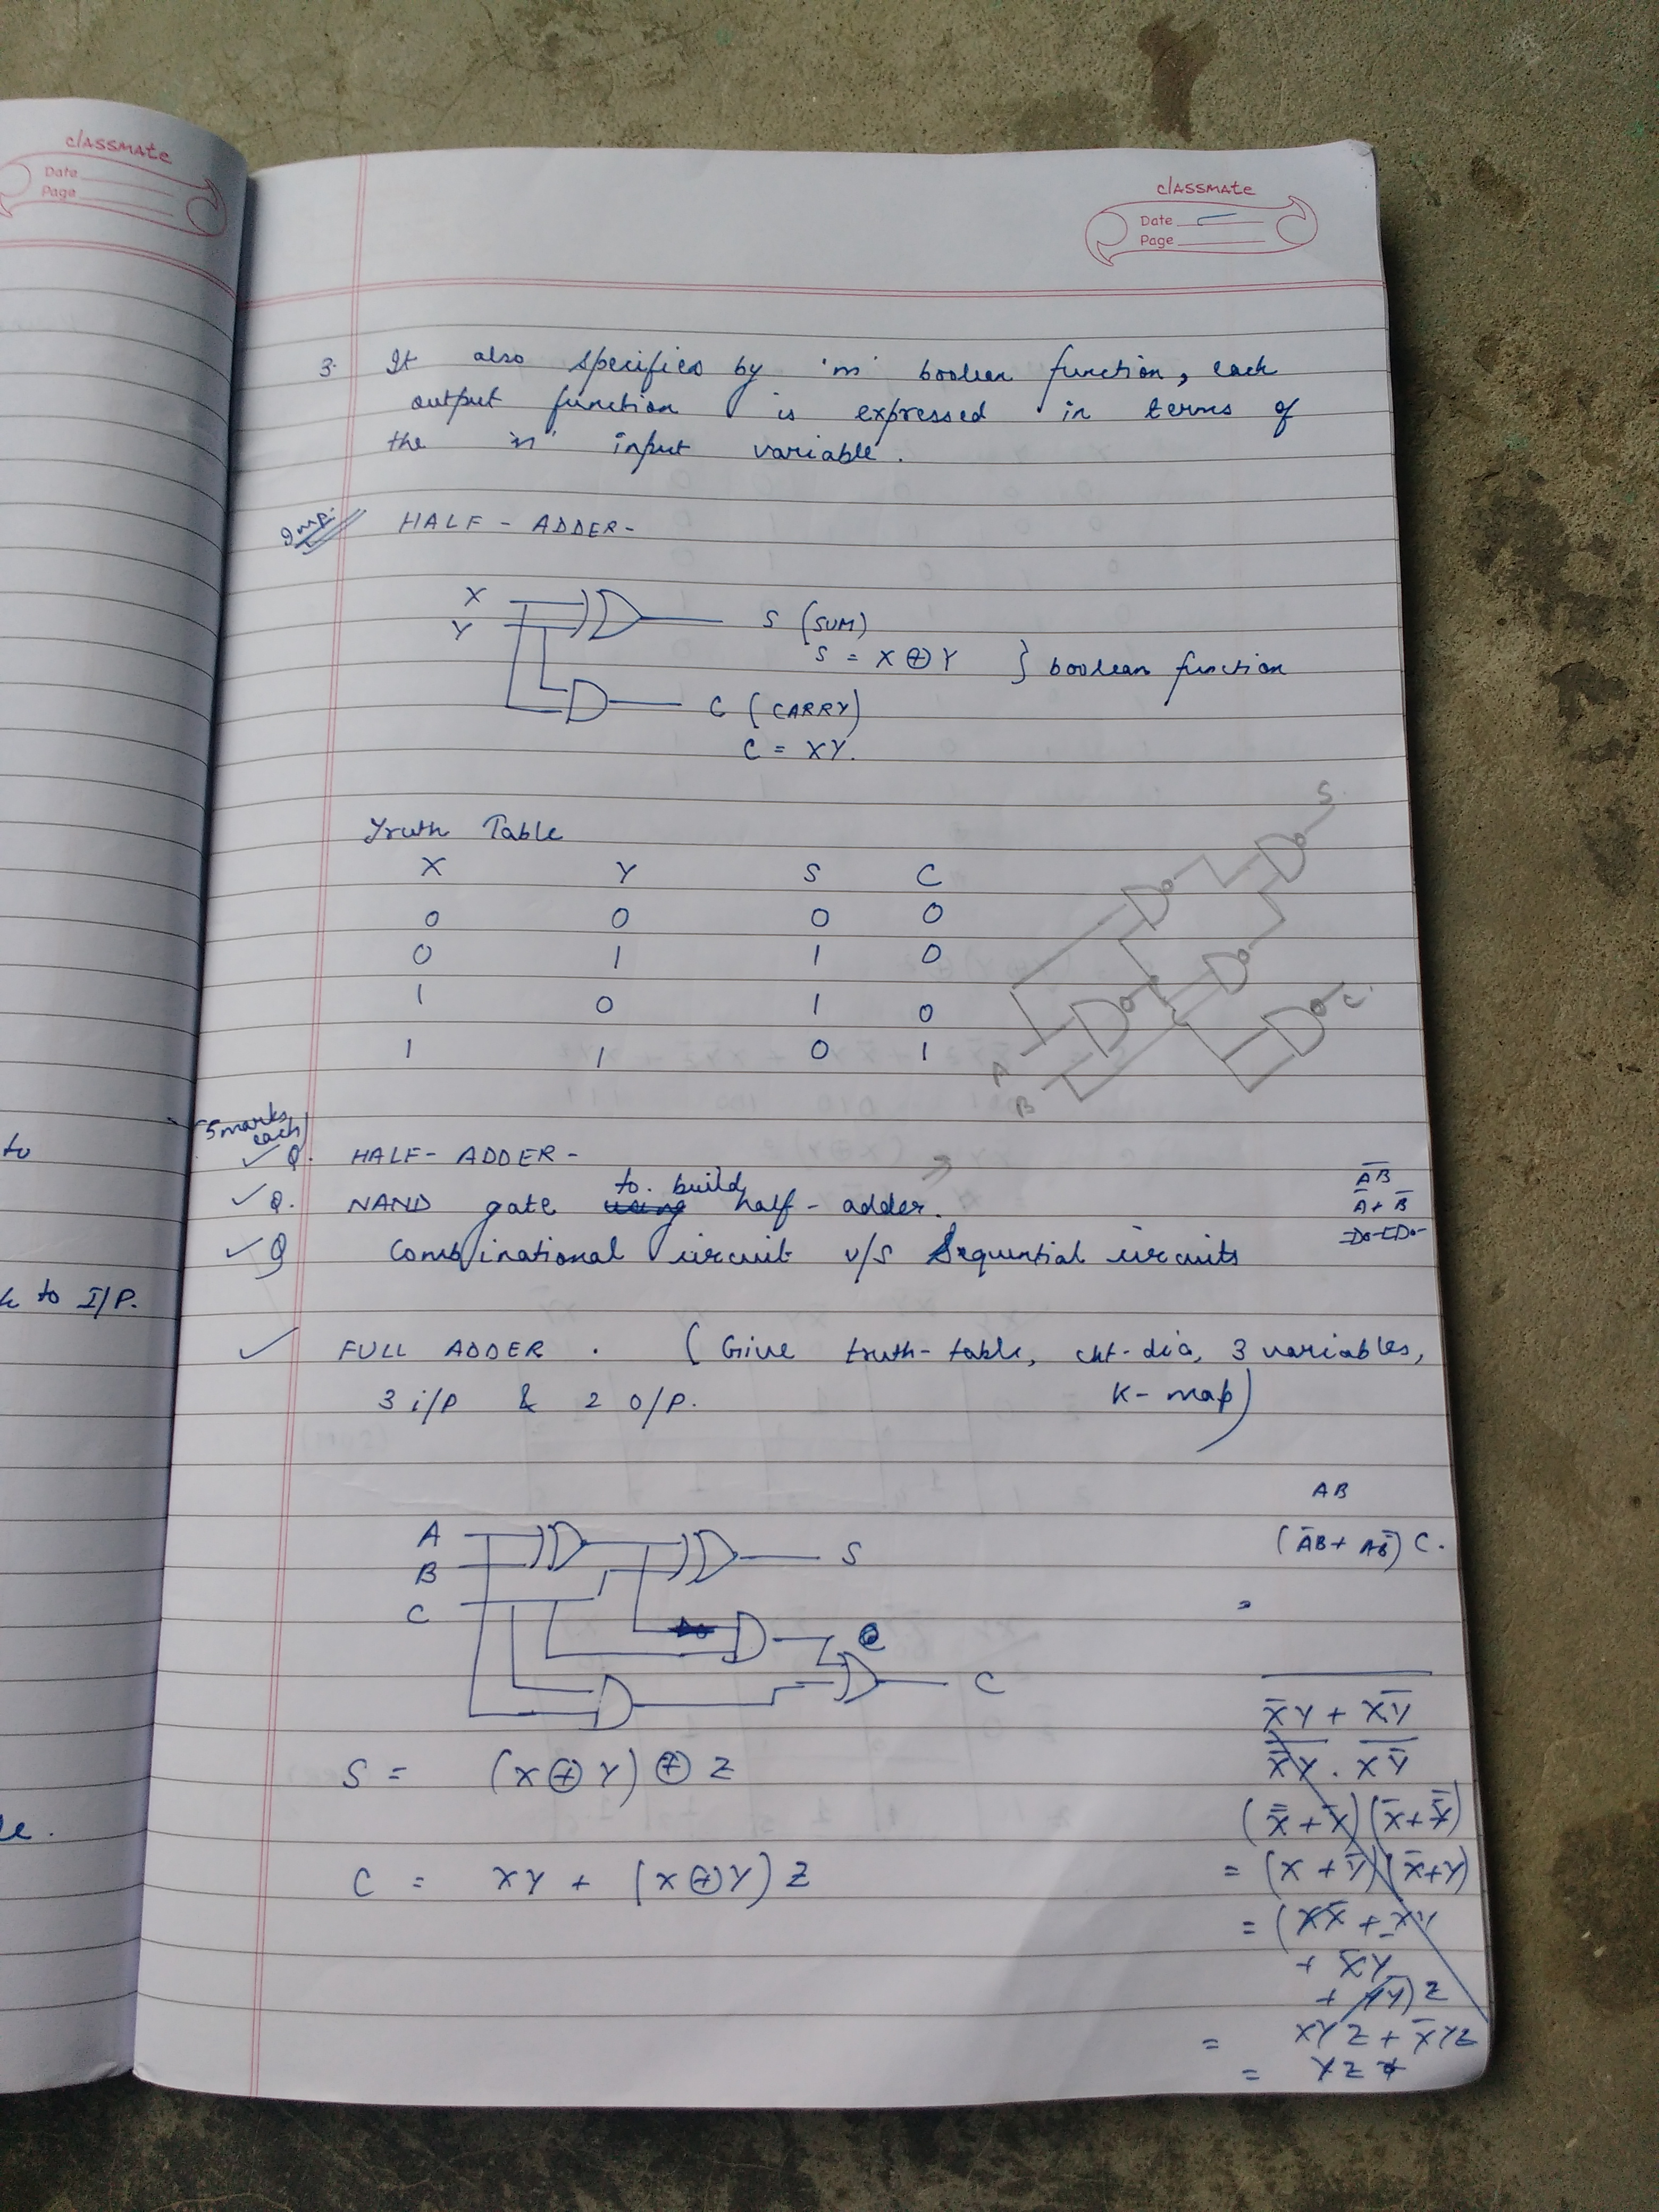 classmate
Date
Page
classmate
Date
Page
3. It also specifies by 'm' boolean function, each
output function is expressed in terms of
the 'n' input variable.
Imp. HALF - ADDER -
X
Y
S (SUM)
S = X ⊕ Y } boolean function
C (CARRY)
C = XY.
Truth Table
X Y S C
0 0 0 0
0 1 1 0
1 0 1 0
1 1 0 1
S
C
A
B
(5 marks each)
Q. HALF - ADDER -
Q. NAND gate to build half - adder.
Q Combinational circuit v/s Sequential circuits
A̅B̅
A̅ + B̅
to
k to I/P.
FULL ADDER . (Give truth-table, ckt-dia, 3 variables,
3 i/p & 2 O/P. K-map)
AB
(A̅B + AB̅) C.
=
A
B
C
S
C
C
S = (X ⊕ Y) ⊕ Z
C = XY + (X ⊕ Y) Z
le.
X̅Y + XY̅
X̅Y . XY̅
= (X + Y̅)(X̅ + Y)
= (XX̅ + XY
+ X̅Y̅
+ YY̅) Z
= XYZ + X̅YZ
= YZ